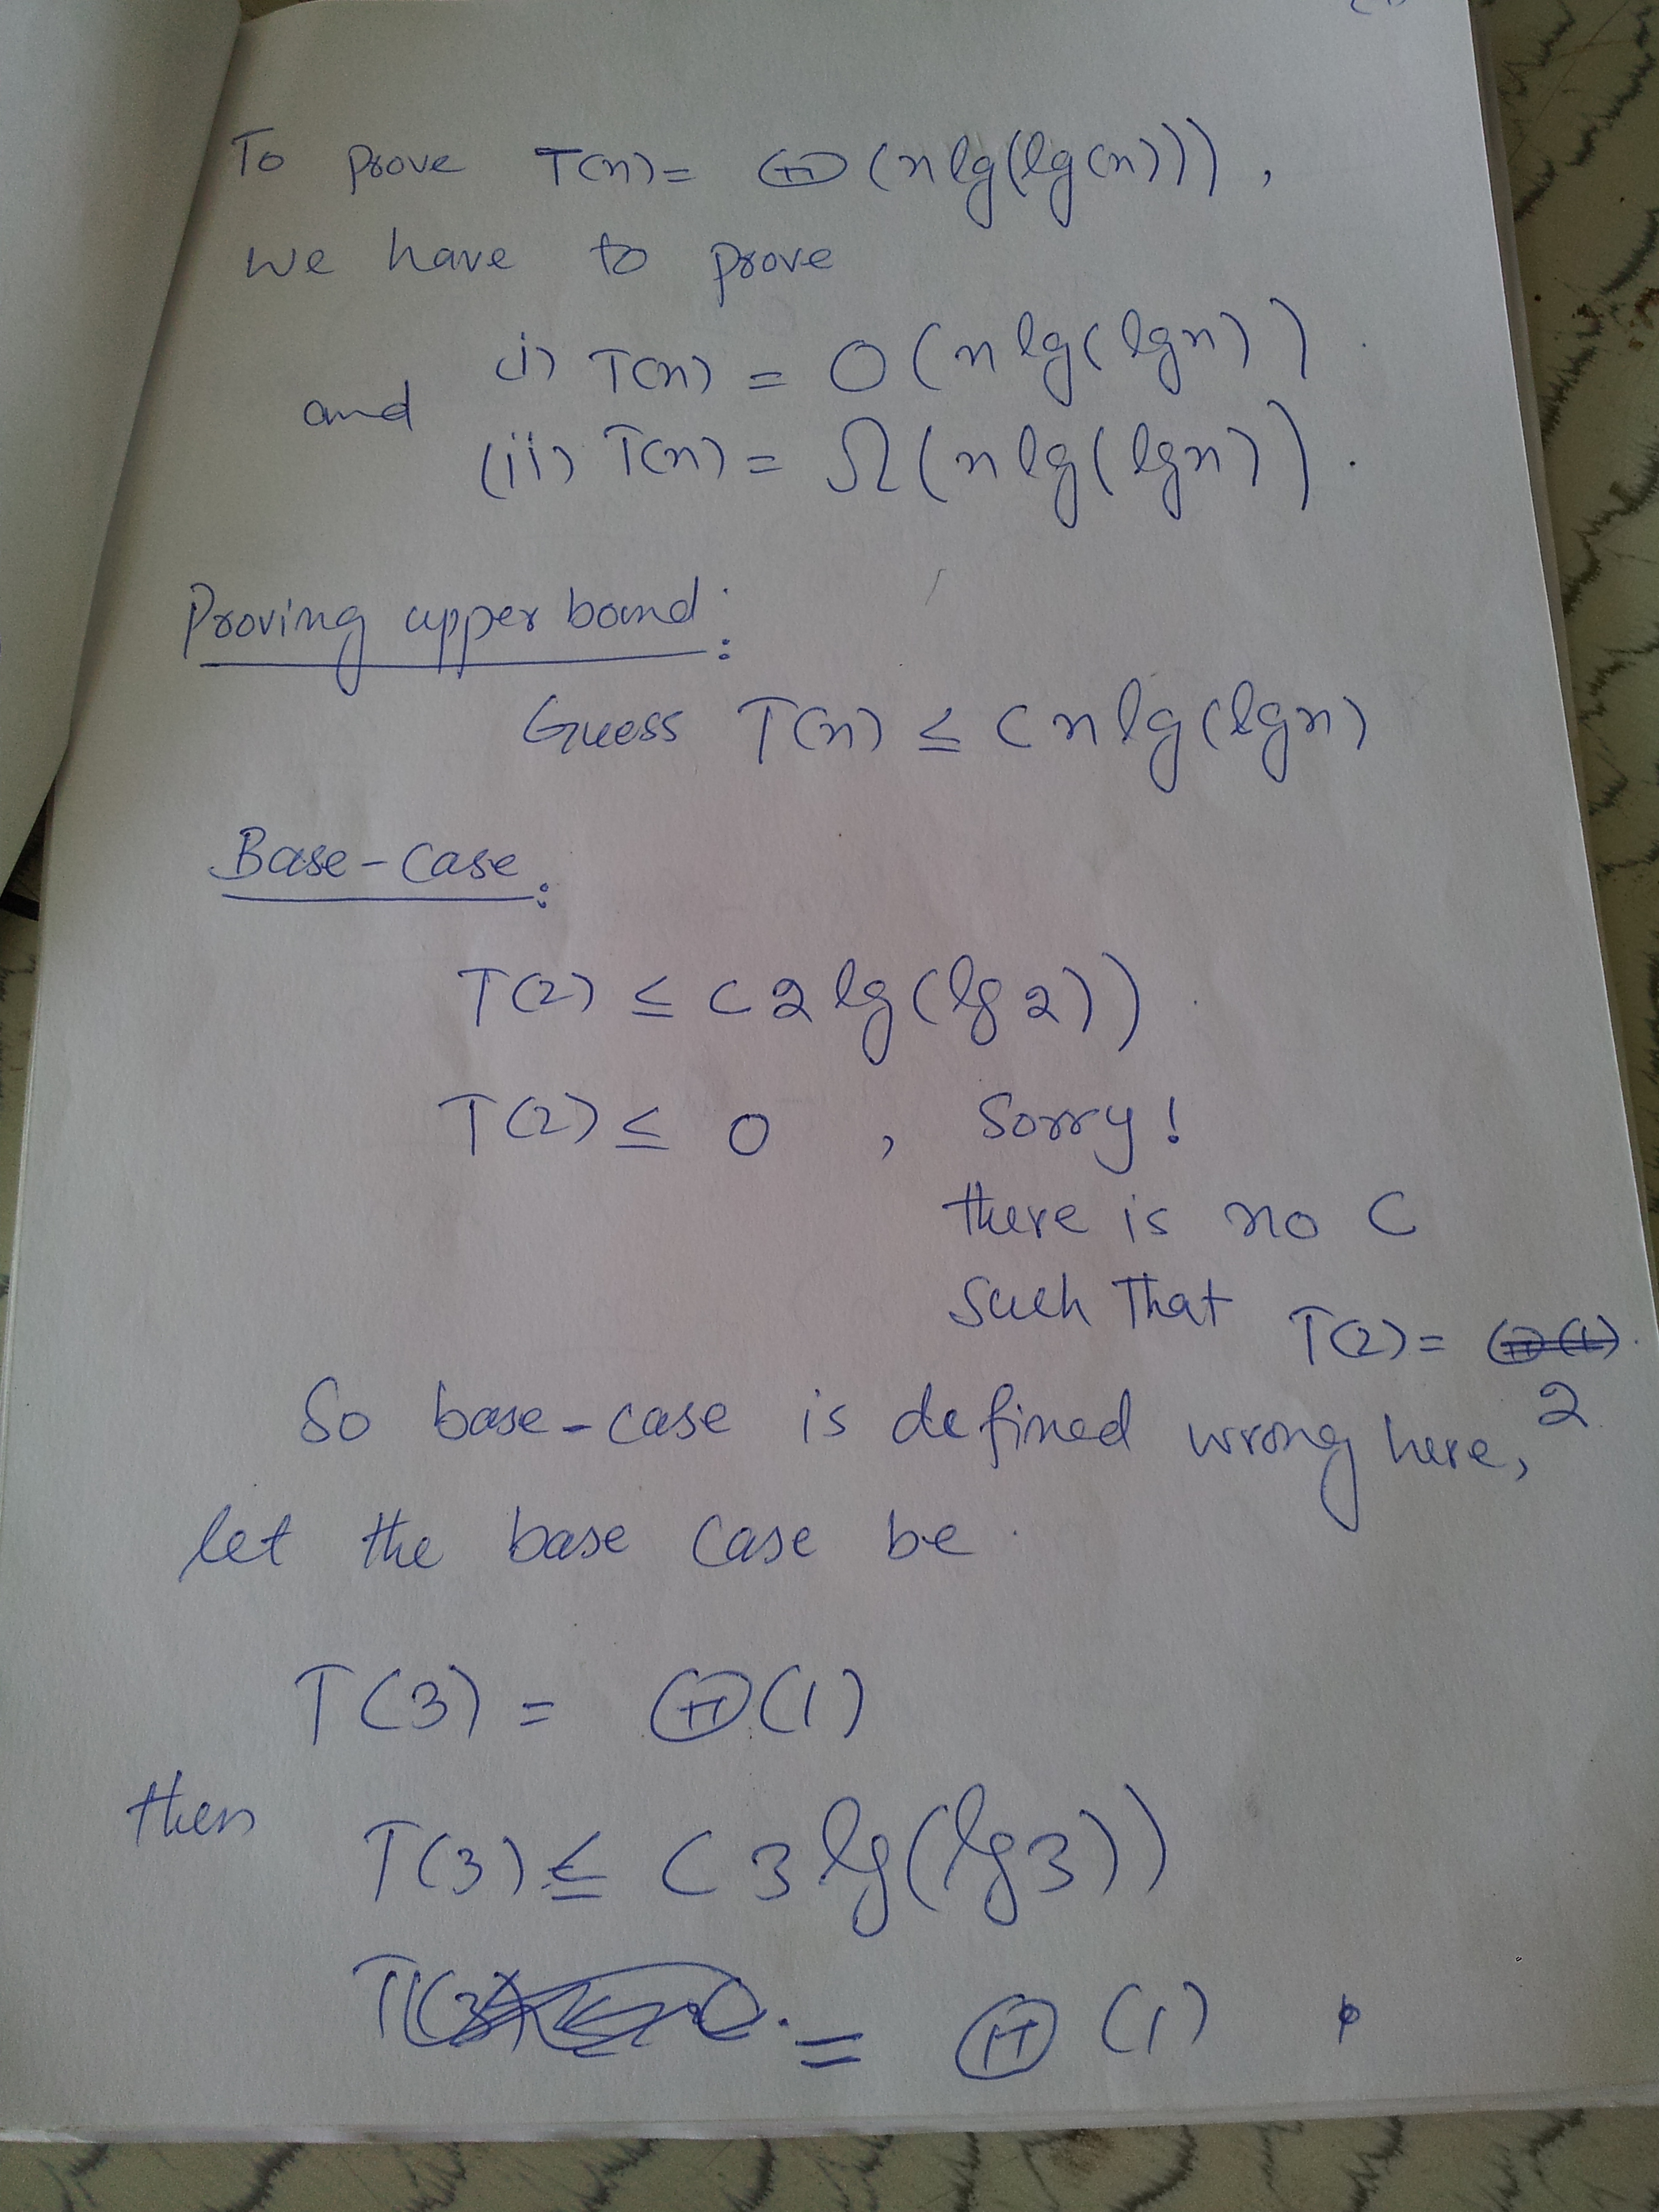 To prove T(n) = Θ(n lg(lg(n))),
we have to prove
(i) T(n) = O(n lg(lg n))
and (ii) T(n) = Ω(n lg(lg n)).
Proving upper bound:
Guess T(n) ≤ c n lg(lg n)
Base-Case:
T(2) ≤ c 2 lg(lg 2)
T(2) ≤ 0, Sorry!
there is no c
such that T(2) =
2
So base-case is defined wrong here,
let the base case be
T(3) = Θ(1)
then T(3) ≤ c 3 lg(lg 3)
= Θ(1).